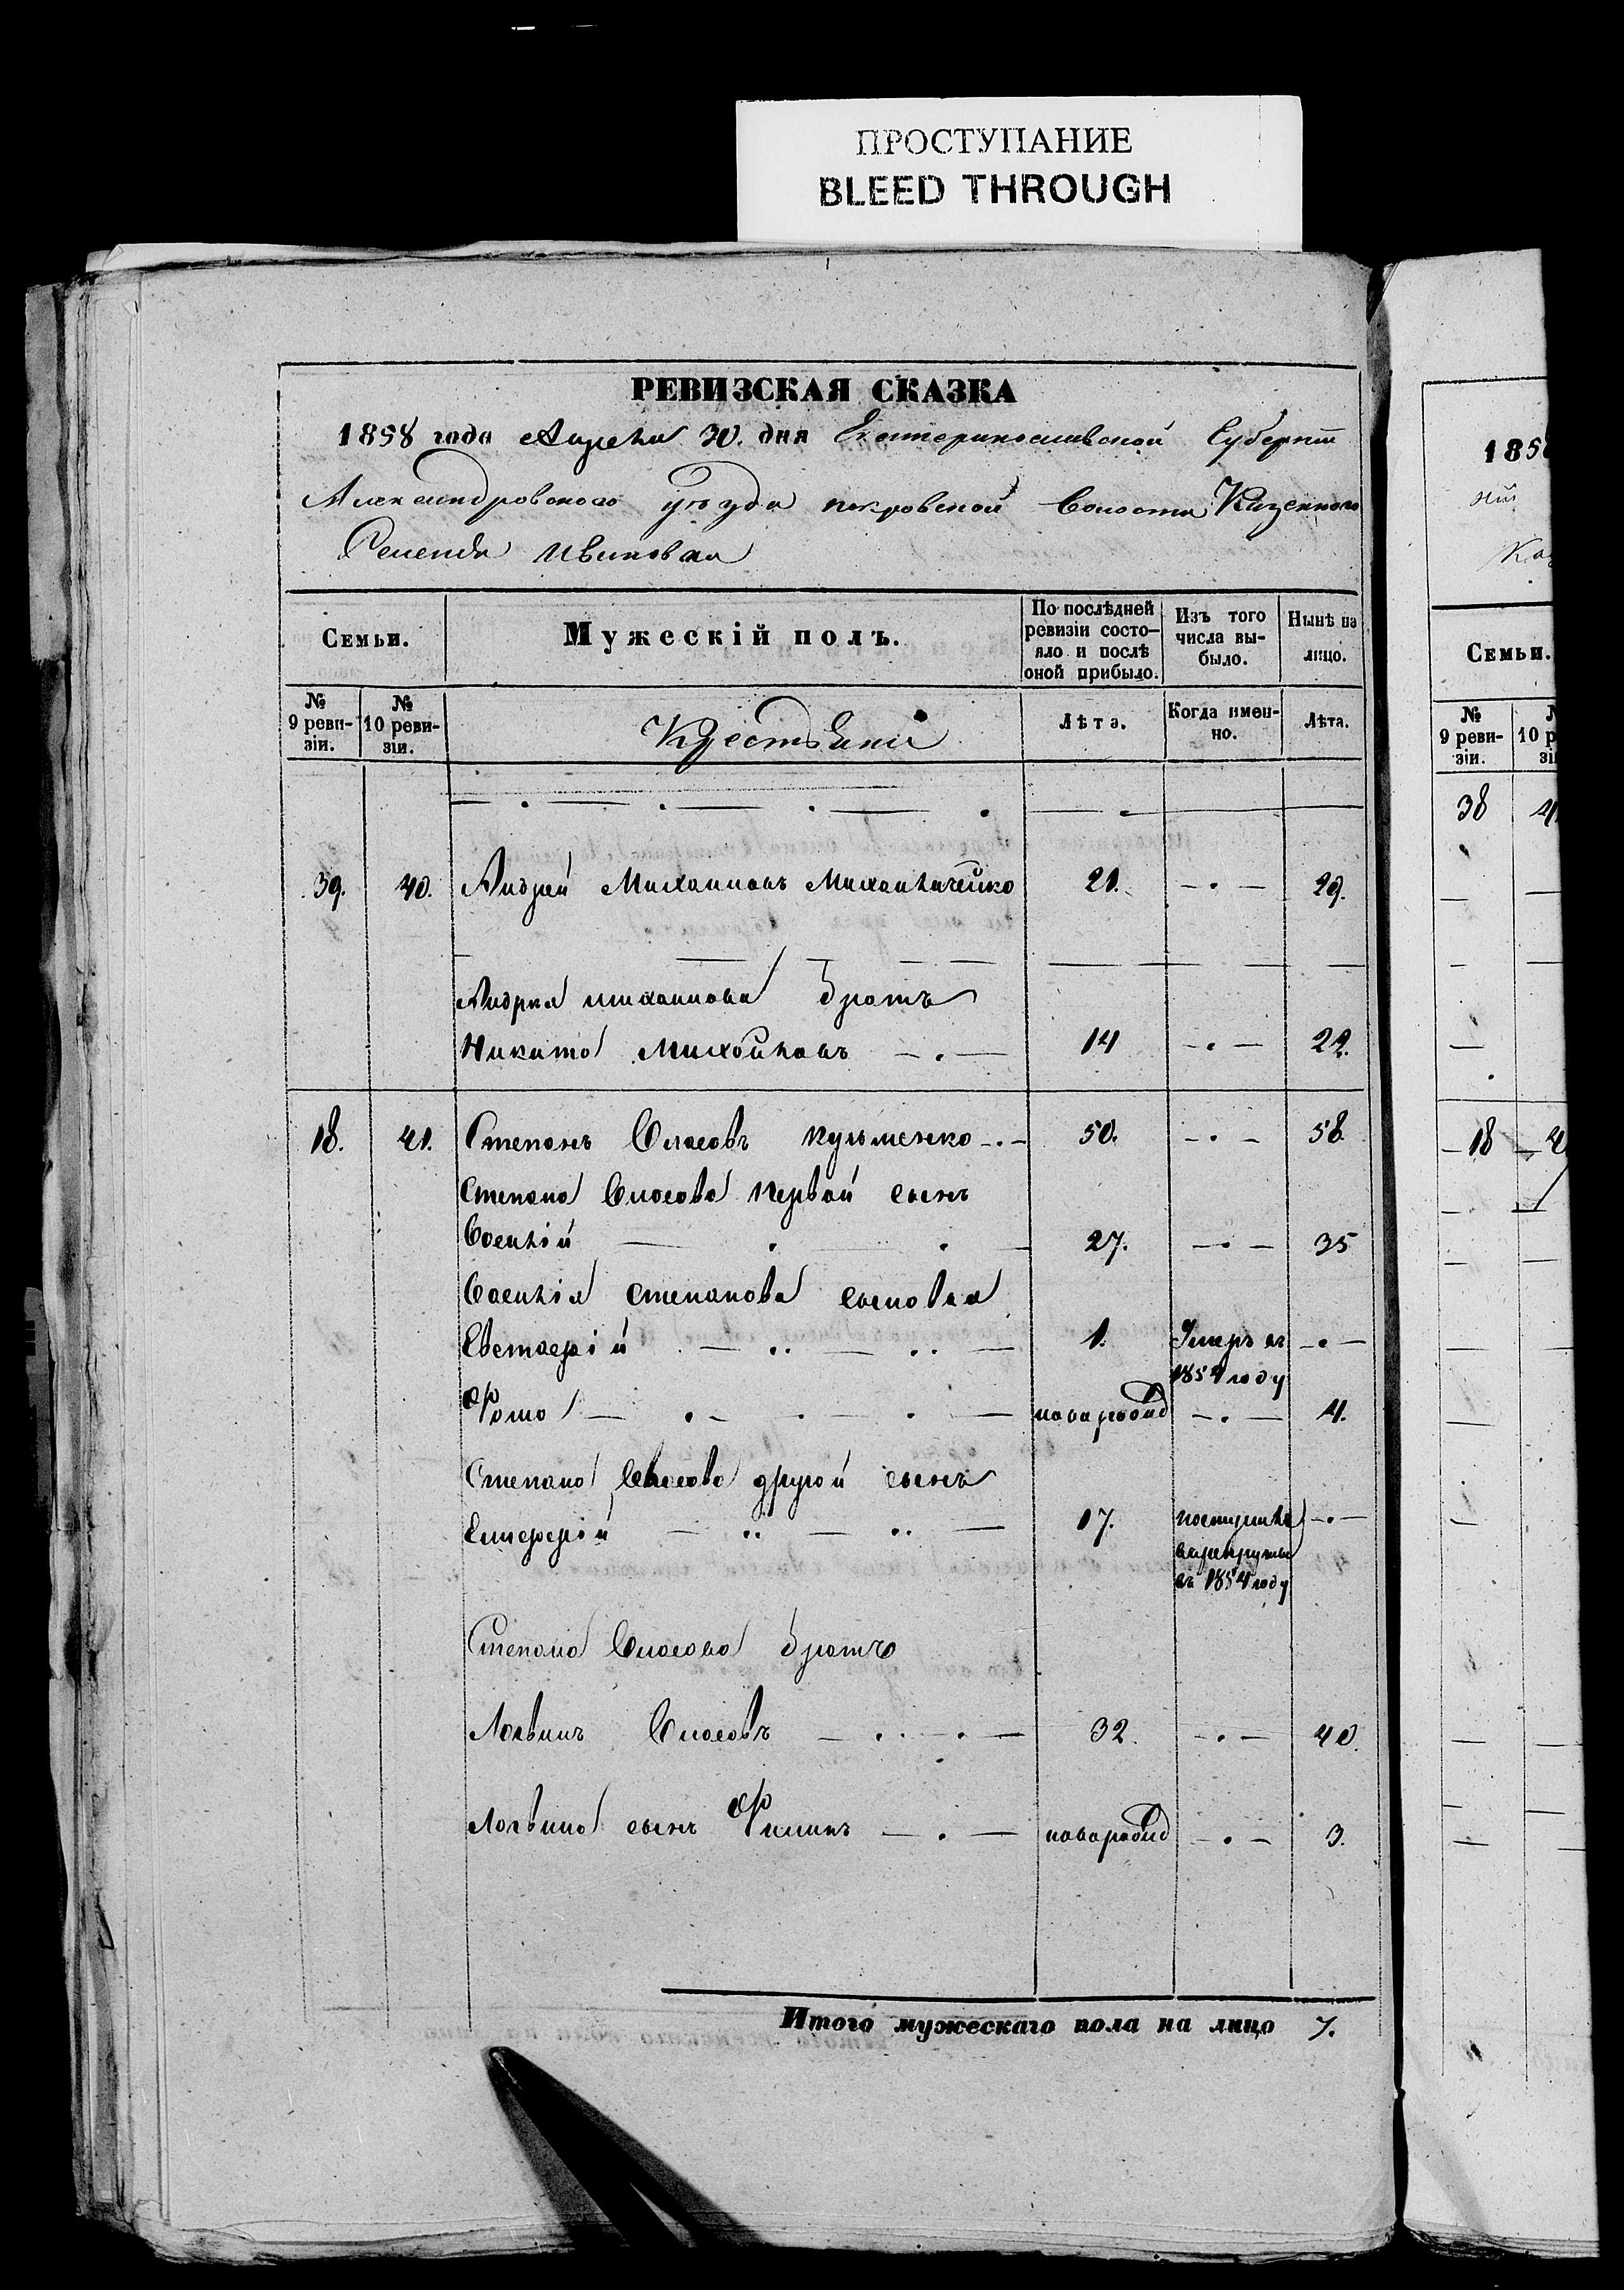 ПРОСТУПАНИЕ
BLEED THROUGH
РЕВИЗСКАЯ СКАЗКА
1858 года Апреля 30. дня Екатеринославской Губернии
Александровского уѣзда покровской Волости Казенного
Селенія Ивановки
Семьи. Мужескій полъ. По послѣдней ревизіи состояло и послѣ оной прибыло. Изъ того числа выбыло. Нынѣ на лицо.
№ 9 ревизіи. № 10 ревизіи. Крестьяне Лѣта. Когда именно. Лѣта.
39. 40. Андрей Михаиловъ Михайличенко 21. 29.
Андрея михаилова братъ
Никита Михайловъ 14 22.
18. 41. Степанъ Власовъ Кузьменко 50. 58.
Степана Власова первой сынъ
Василій 27. 35
Василія степанова сыновья
Евстафій 1. Умеръ въ 1854 году
Фома новорожд 4.
Степана Власова другой сынъ
17. поступилъ в рекруты въ 1854 году
Степана Власова братъ
Логвинъ Власовъ 32. 40.
Логвина сынъ Филипъ новорожд 3.
Итого мужескаго пола на лицо 7.
185
Семьи.
№ 9 ревизіи.
38
18